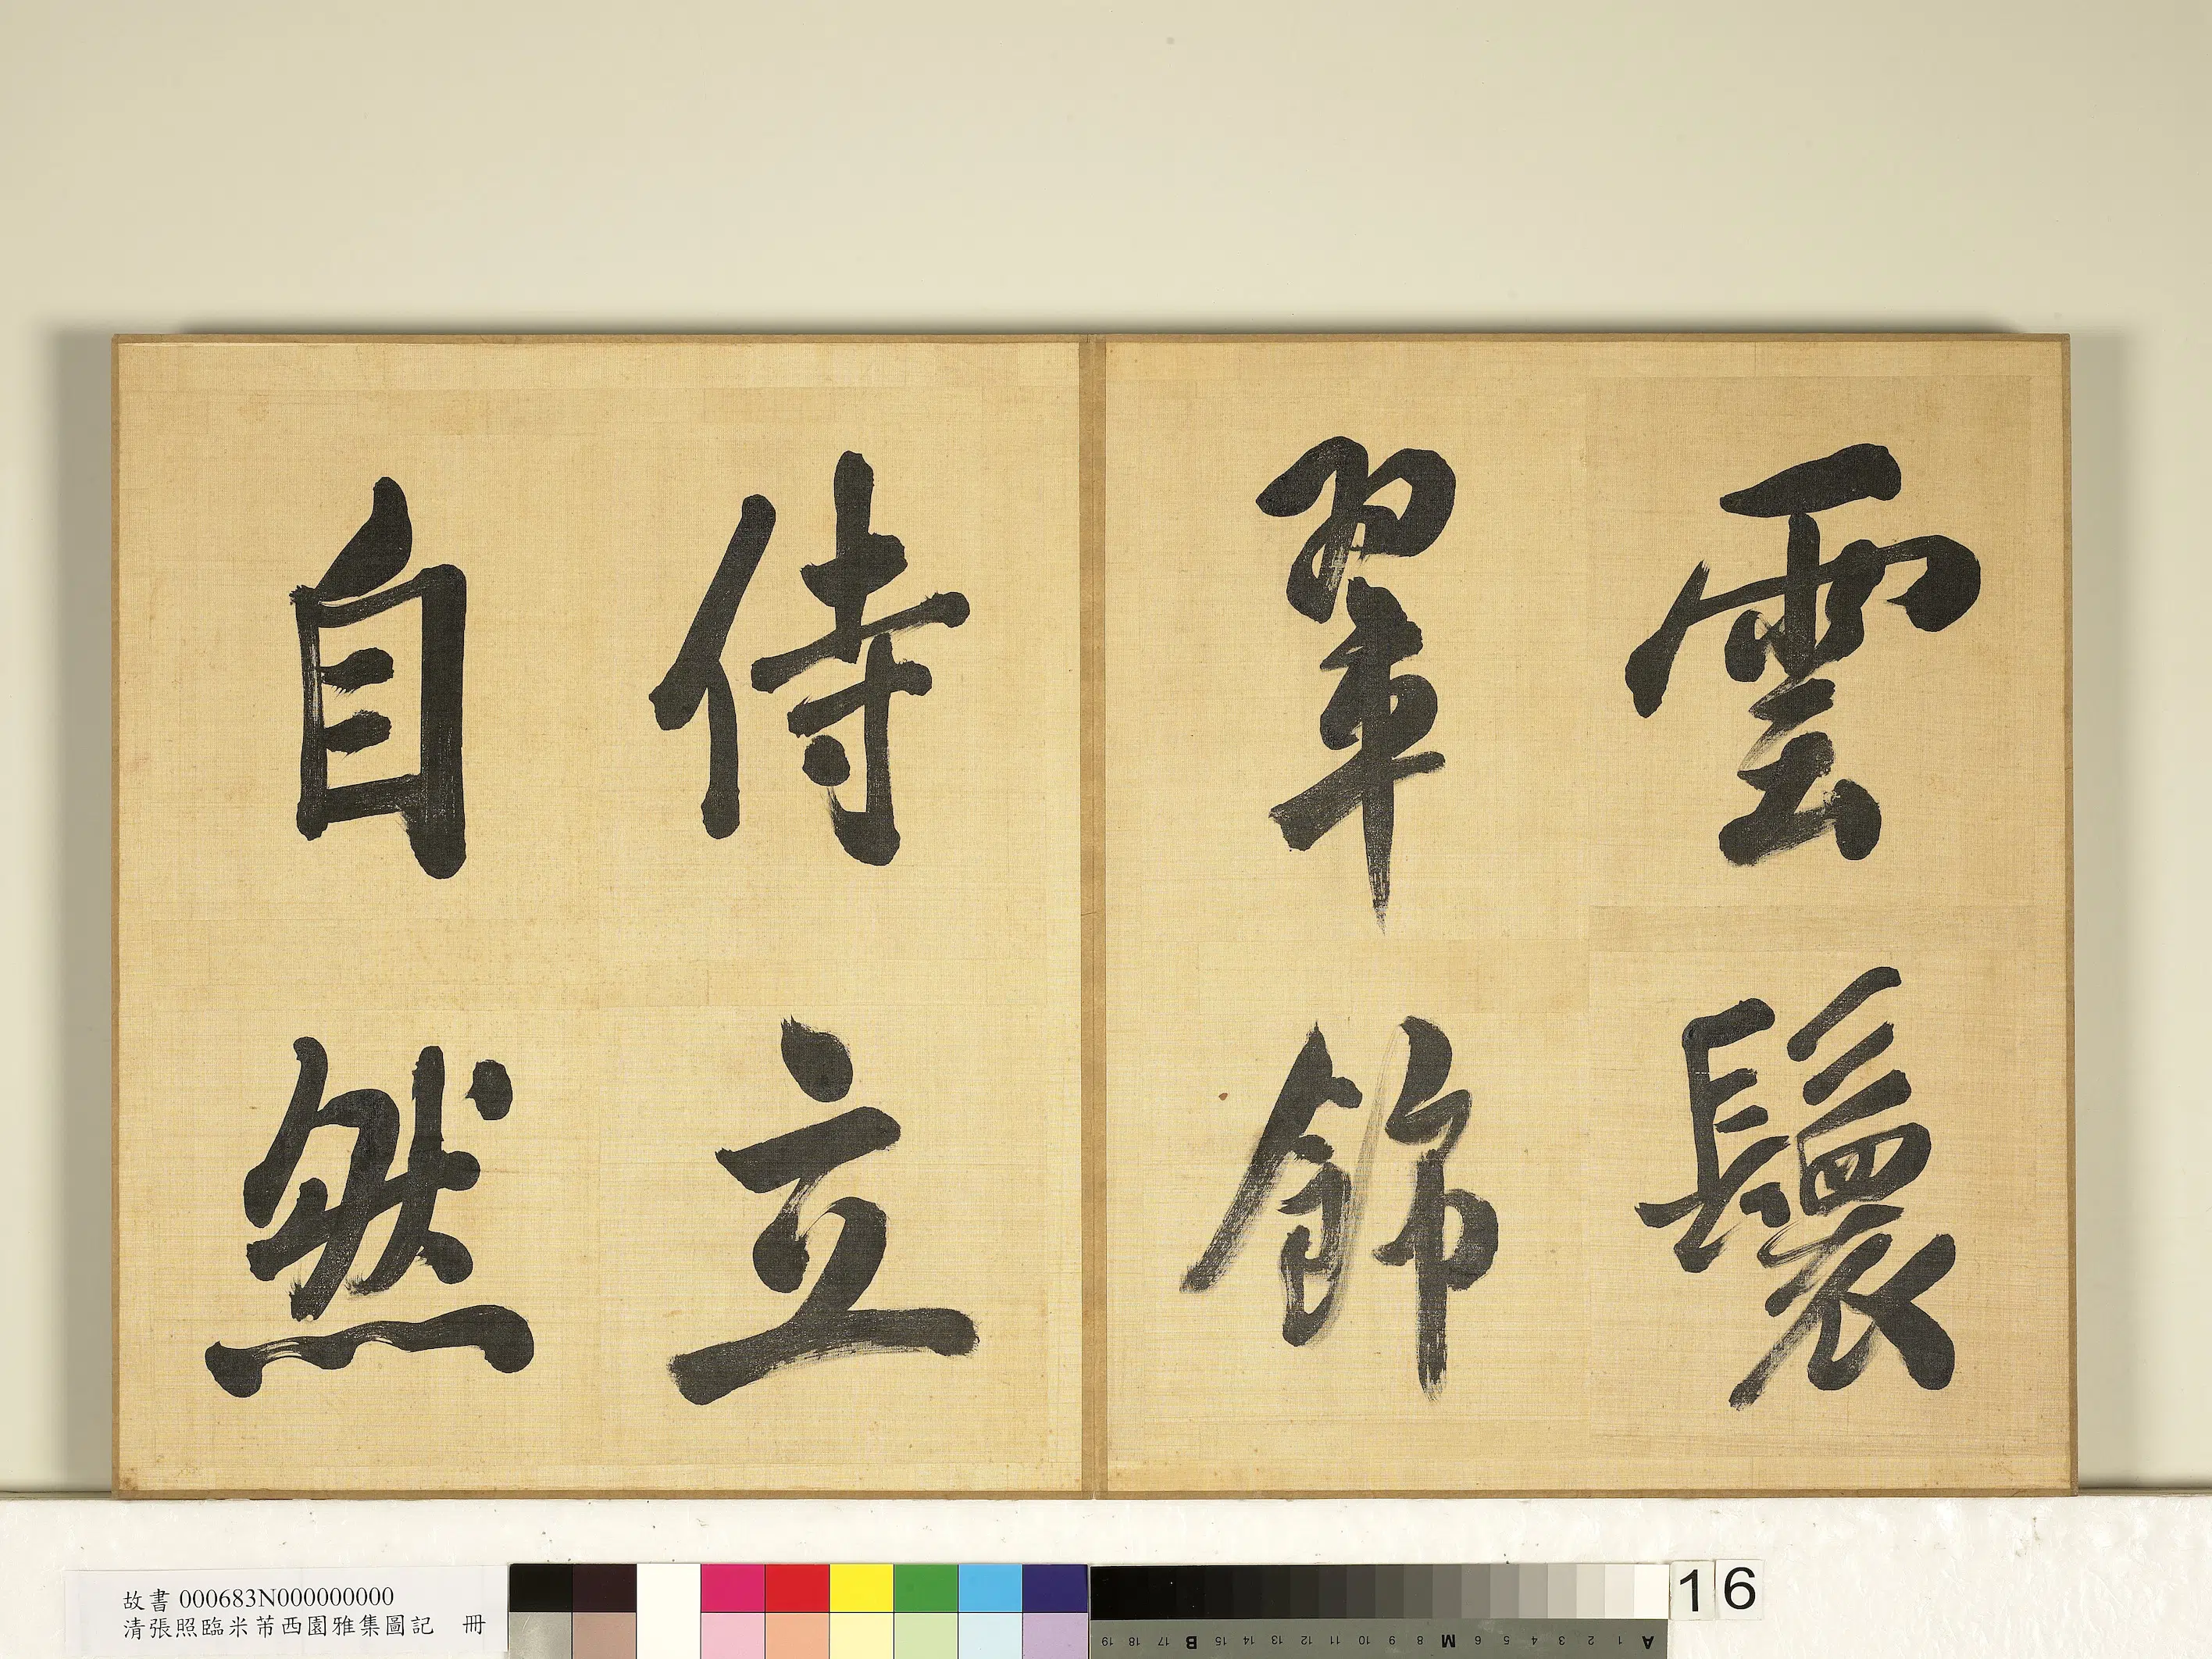 雲鬟
翠飾
侍立
自然
故書 000683N000000000
清張照臨米芾西園雅集圖記 冊
16
19 18 17 B 15 14 13 12 11 10 9 8 M 6 5 4 3 2 1 A